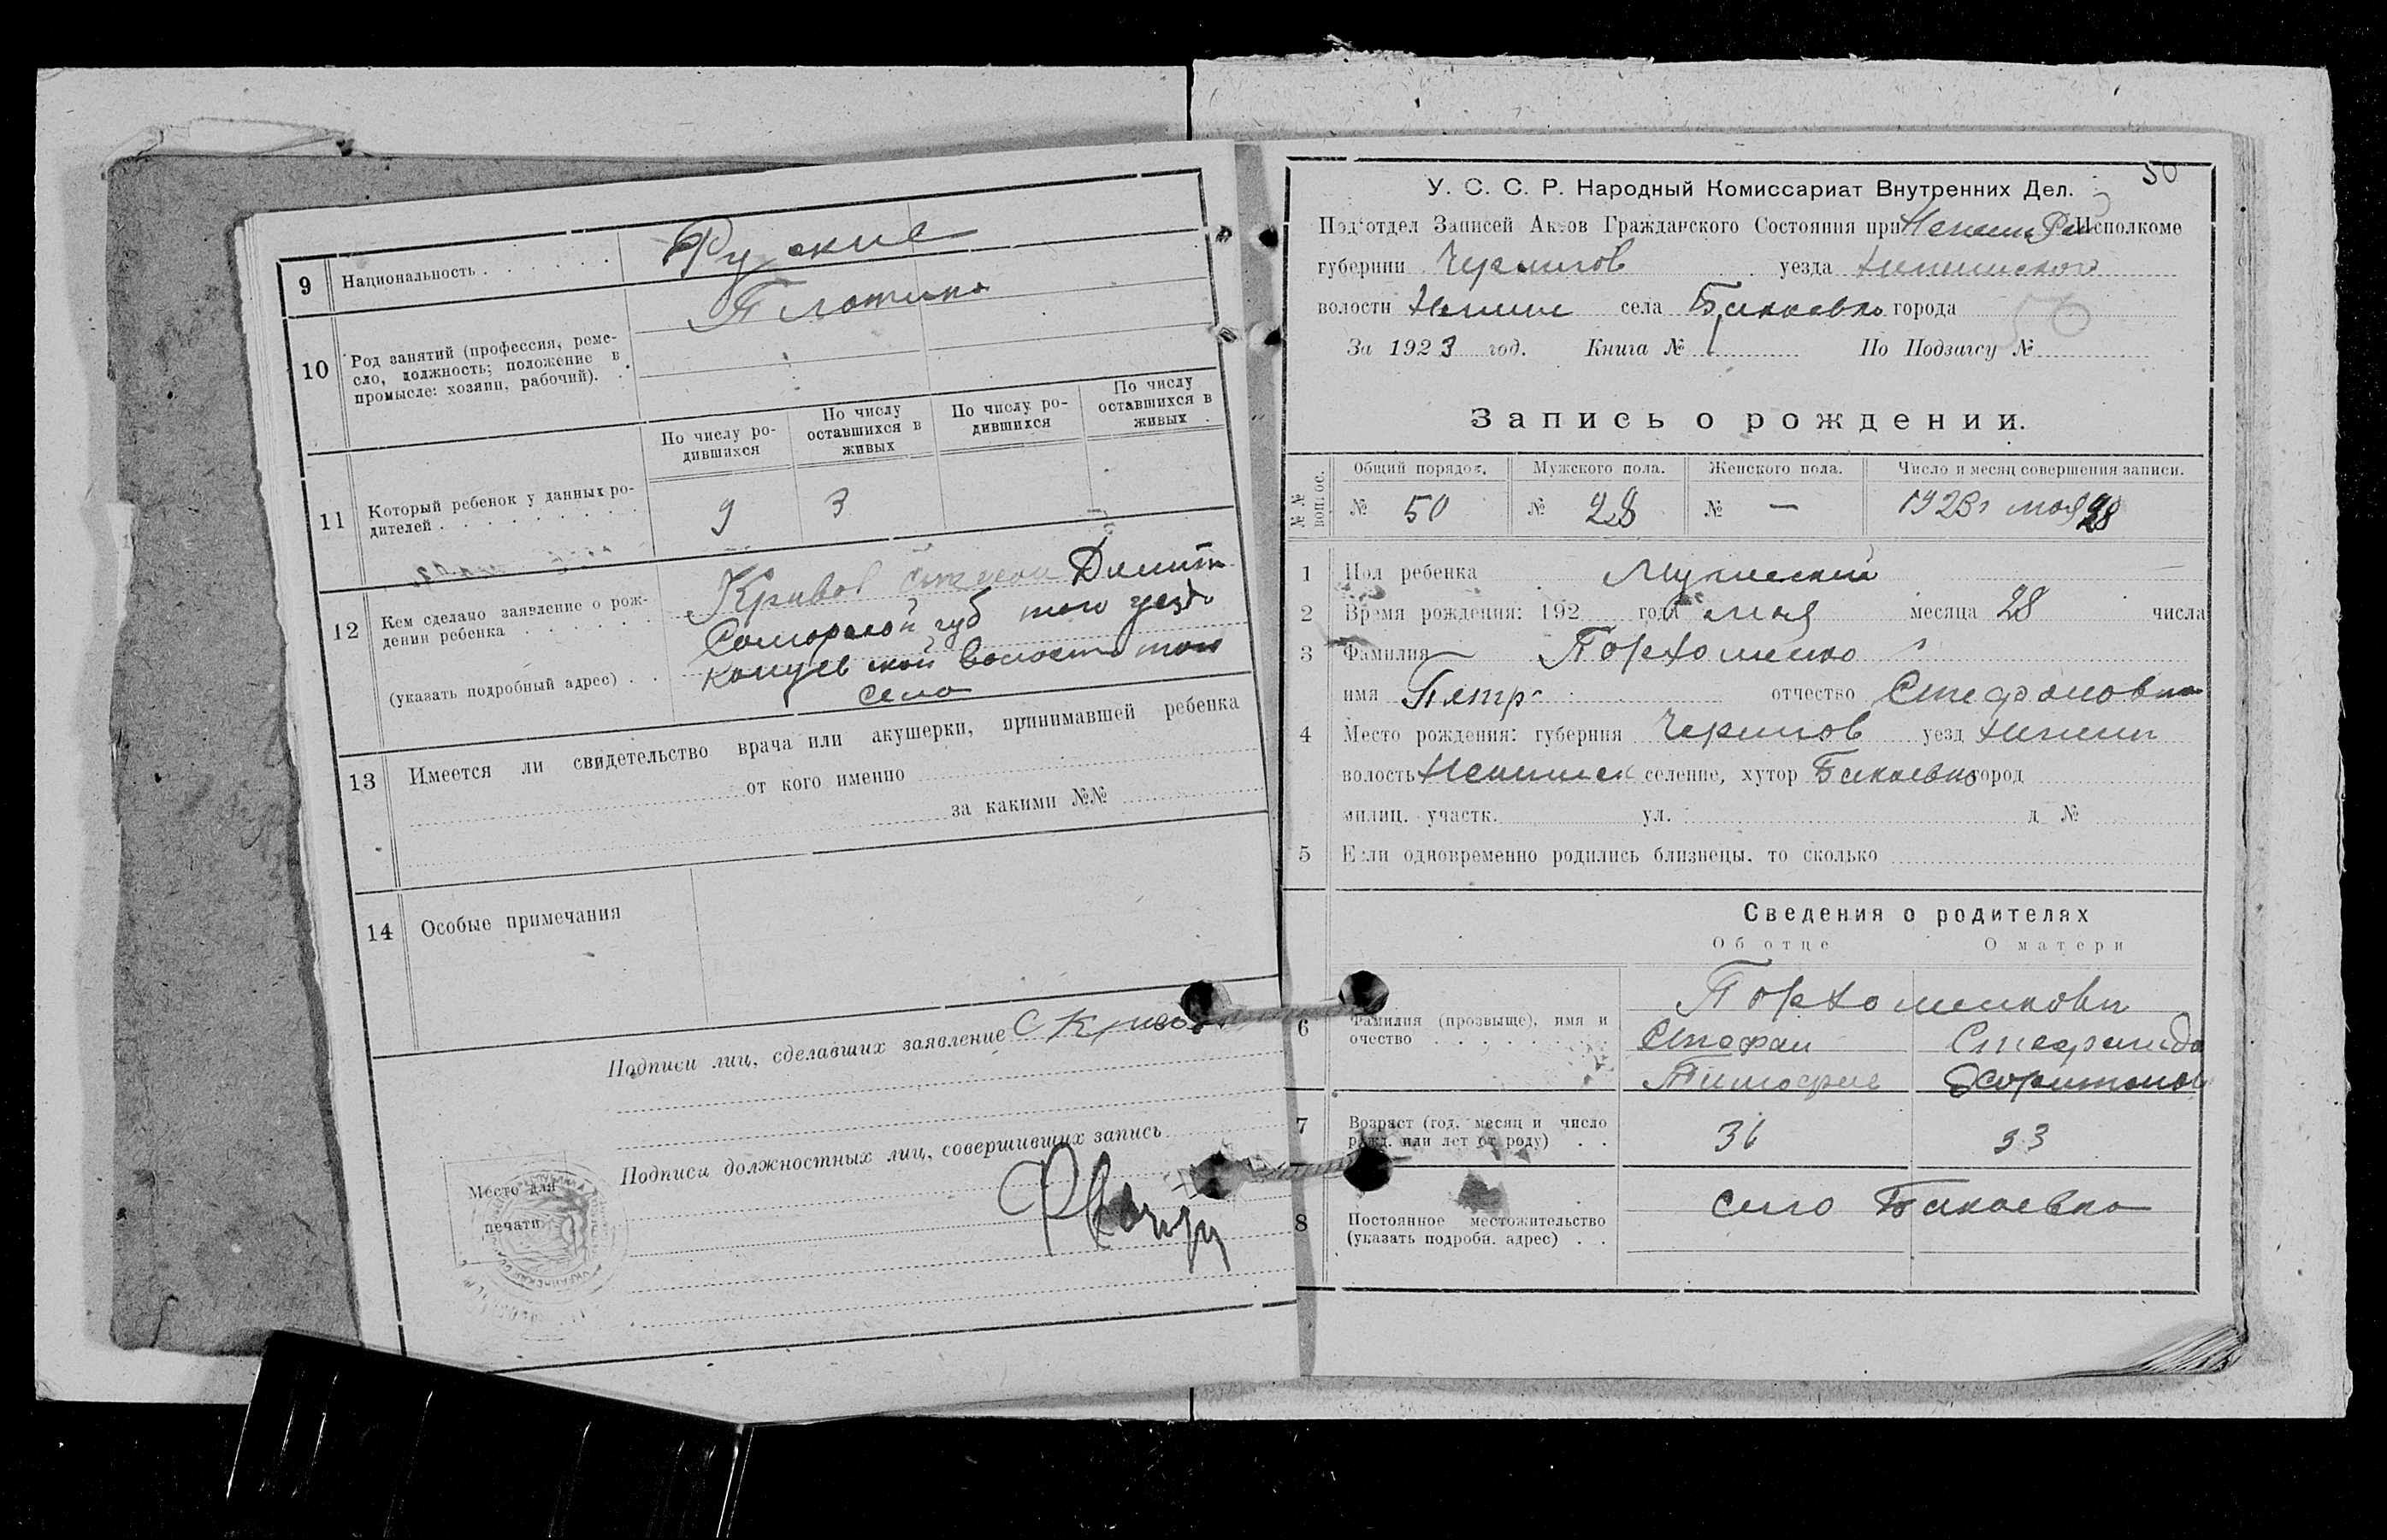 9 Национальность . . . . . . Руские
10 Род занятий (профессия, реме-
сло, должность; положение в
промысле: хозяин, рабочий). .
Плотник
По числу ро-
дившихся
По числу
оставшихся в
живых
По числу ро-
дившихся
По числу
оставшихся в
живых .
11 Который ребенок у данных ро-
дителей . . . . . . . . .
9 3
12 Кем сделано заявление о рож-
дении ребенка . . . . . .
(указать подробный адрес) . .
Кривов
Самарской губ того уезда
волости того
село
13 Имеется ли свидетельство врача или акушерки, принимавшей ребенка
от кого именно
за какими №№
14 Особые примечания
Подписи лиц, сделавших заявление С Кривов
Подписи должностных лиц, совершивших запись
Место для
печати
50
У. С. С. Р. Народный Комиссариат Внутренних Дел.
Подотдел Записей Актов Гражданского Состояния при Исполкоме
губернии Чернигов уезда Нежинского
волости Нежин села Бакаевка города 50
За 1923 год. Книга № 1 По Подзагсу №
Запись о рождении.
№№ вопрос.
Общий порядок. Мужского пола. Женского пола. Число и месяц совершения записи.
№ 50 № 28 № — 1923 г мая 28
1 Пол ребенка Мужеский
2 Время рождения: 192 года мая месяца 28 числа
3 Фамилия Порхоменко
имя Петр отчество Стефанович
4 Место рождения: губерния Чернигов уезд Нежин
волость Нежинск селение, хутор Бакаевка город
милиц. участк. ул. д №
5 Если одновременно родились близнецы, то сколько
Сведения о родителях
Об отце О матери
Порхоменковы
6 Фамилия (прозвыще), имя и
очество . . . . . . . . .
Стефан Стефанида
Тимофие Харитонов
7 Возраст (год, месяц и число
рожд. или лет от роду) . .
36 33
8 Постоянное местожительство
(указать подробн. адрес) . .
село Бакаевка